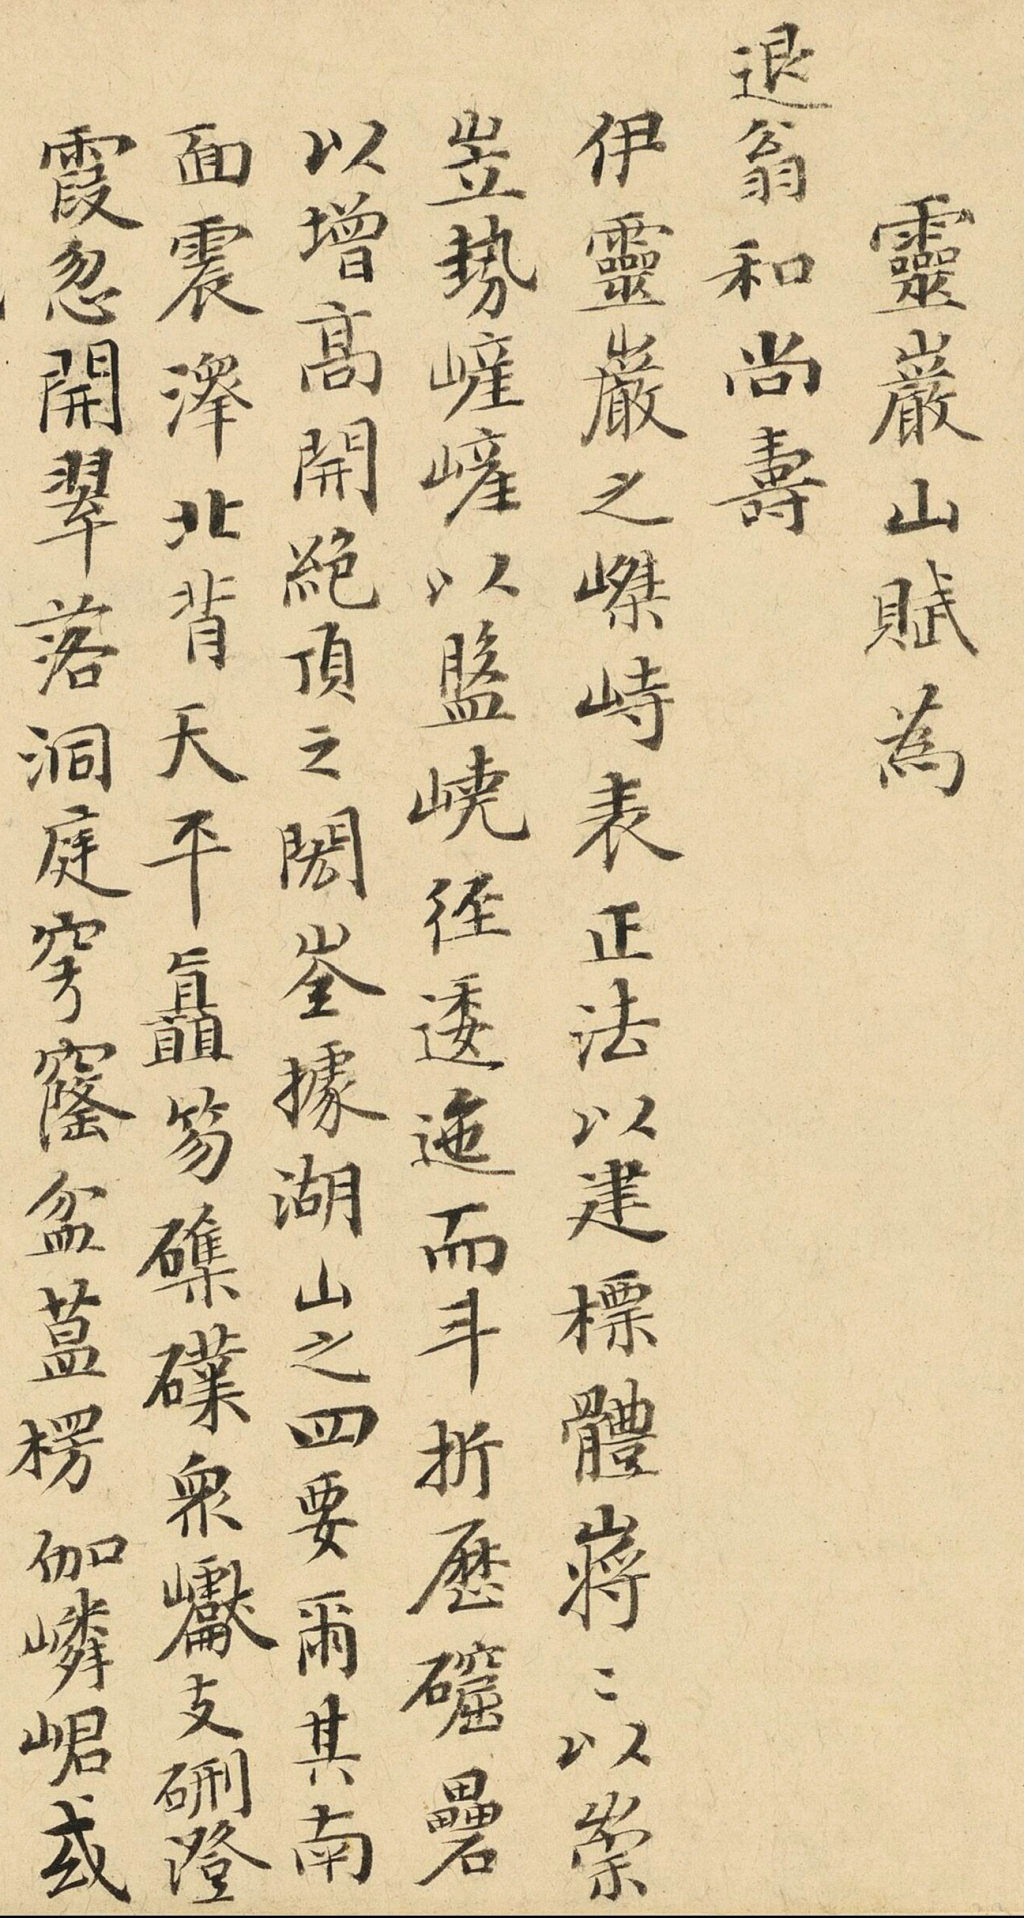 靈巖山賦為
退翁和尚壽
伊靈巖之嵥峙表正法以建標體嶈〻以崇
岦勢嵼嵼以盤嶢徑逶迤而斗折歷礭礨
以增高開絕頂之閎崟據湖山之四要爾其南
面震澤北背天平矗笏磼礏眾巘支硎澄
霞忽開翠落洞庭穹窿盆葢楞伽嶙峮或